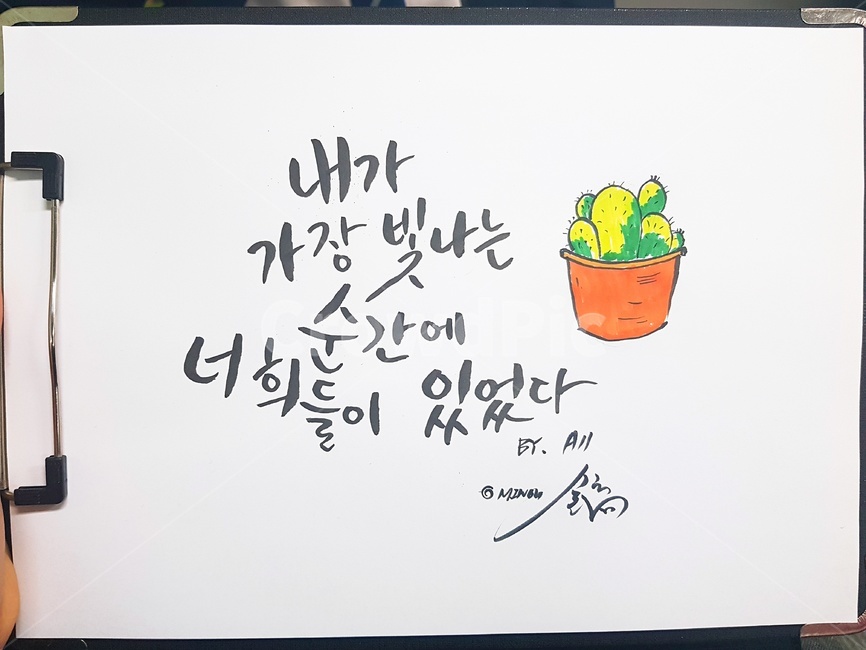 내가
가장 빛나는
순간에
너희들이 있었다
BY. All